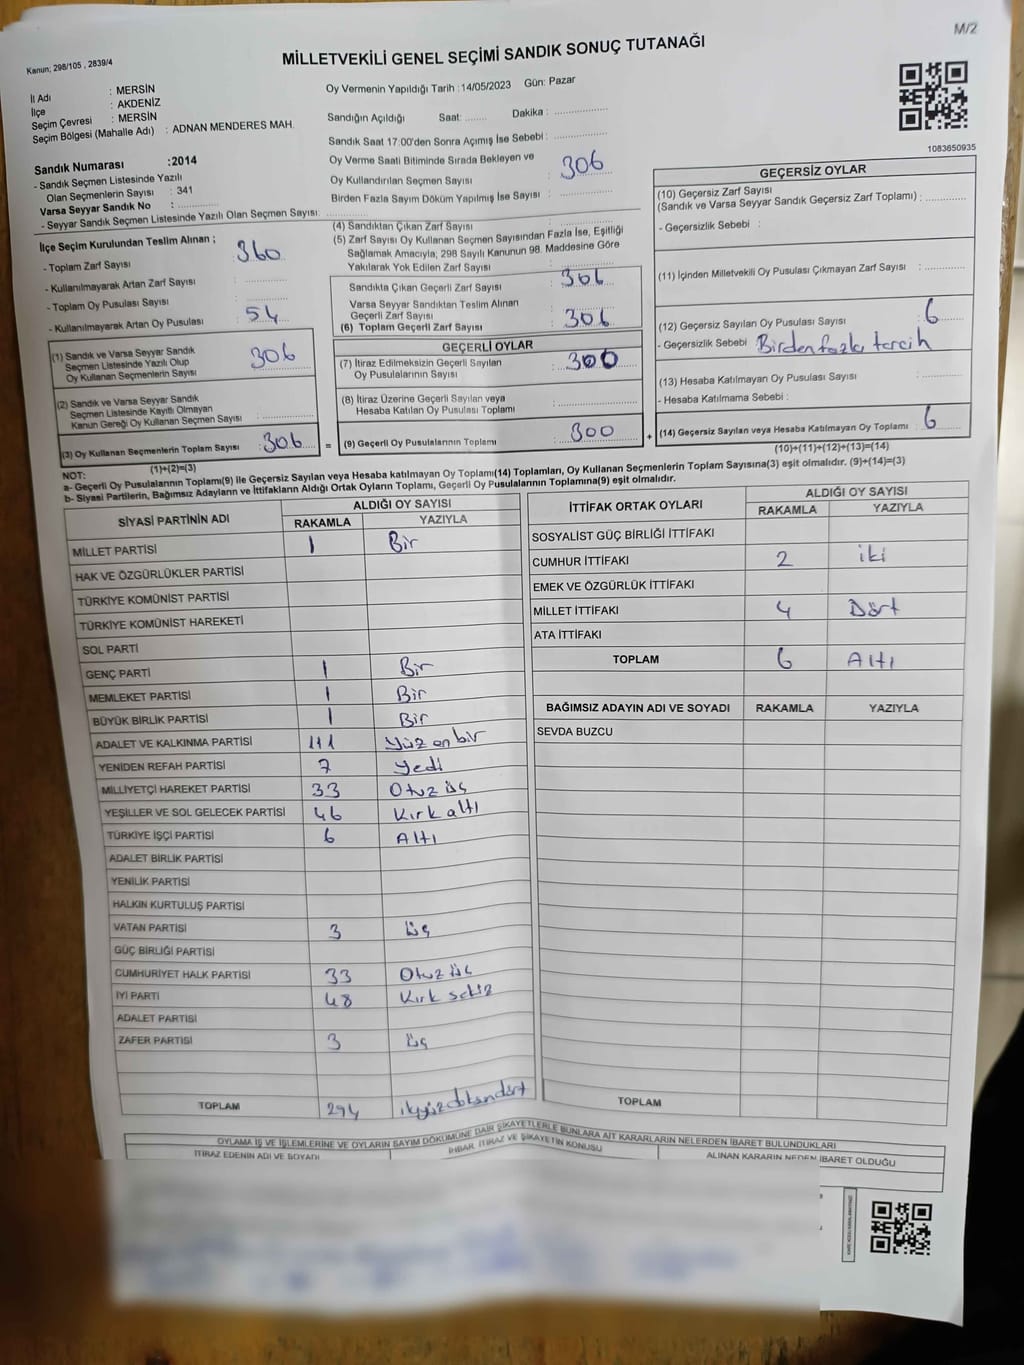 M/2
Kanun; 298/105 , 2839/4
MİLLETVEKİLİ GENEL SEÇİMİ SANDIK SONUÇ TUTANAĞI
İl Adı : MERSİN
İlçe : AKDENİZ
Seçim Çevresi : MERSİN
Seçim Bölgesi (Mahalle Adı) : ADNAN MENDERES MAH.
Sandık Numarası :2014
- Sandık Seçmen Listesinde Yazılı
Olan Seçmenlerin Sayısı : 341
Varsa Seyyar Sandık No :
- Seyyar Sandık Seçmen Listesinde Yazılı Olan Seçmen Sayısı:
Oy Vermenin Yapıldığı Tarih :14/05/2023 Gün: Pazar
Sandığın Açıldığı Saat: Dakika :
Sandık Saat 17:00'den Sonra Açımış İse Sebebi :
Oy Verme Saati Bitiminde Sırada Bekleyen ve
Oy Kullandırılan Seçmen Sayısı : 306
Birden Fazla Sayım Döküm Yapılmış İse Sayısı :
1083650935
İlçe Seçim Kurulundan Teslim Alınan ;
- Toplam Zarf Sayısı : 360
- Kullanılmayarak Artan Zarf Sayısı :
- Toplam Oy Pusulası Sayısı :
- Kullanılmayarak Artan Oy Pusulası : 54
(1) Sandık ve Varsa Seyyar Sandık
Seçmen Listesinde Yazılı Olup
Oy Kullanan Seçmenlerin Sayısı : 306
(2) Sandık ve Varsa Seyyar Sandık
Seçmen Listesinde Kayıtlı Olmayan
Kanun Gereği Oy Kullanan Seçmen Sayısı :
(3) Oy Kullanan Seçmenlerin Toplam Sayısı : 306 =
(1)+(2)=(3)
(4) Sandıktan Çıkan Zarf Sayısı :
(5) Zarf Sayısı Oy Kullanan Seçmen Sayısından Fazla İse, Eşitliği
Sağlamak Amacıyla; 298 Sayılı Kanunun 98. Maddesine Göre
Yakılarak Yok Edilen Zarf Sayısı :
Sandıkta Çıkan Geçerli Zarf Sayısı : 306
Varsa Seyyar Sandıktan Teslim Alınan
Geçerli Zarf Sayısı :
(6) Toplam Geçerli Zarf Sayısı : 306
GEÇERLİ OYLAR
(7) İtiraz Edilmeksizin Geçerli Sayılan
Oy Pusulalarının Sayısı : 300
(8) İtiraz Üzerine Geçerli Sayılan veya
Hesaba Katılan Oy Pusulası Toplamı :
(9) Geçerli Oy Pusulalarının Toplamı : 300 +
GEÇERSİZ OYLAR
(10) Geçersiz Zarf Sayısı
(Sandık ve Varsa Seyyar Sandık Geçersiz Zarf Toplamı) :
- Geçersizlik Sebebi :
(11) İçinden Milletvekili Oy Pusulası Çıkmayan Zarf Sayısı :
(12) Geçersiz Sayılan Oy Pusulası Sayısı : 6
- Geçersizlik Sebebi : Birden fazla tercih
(13) Hesaba Katılmayan Oy Pusulası Sayısı :
- Hesaba Katılmama Sebebi :
(14) Geçersiz Sayılan veya Hesaba Katılmayan Oy Toplamı : 6
(10)+(11)+(12)+(13)=(14)
NOT:
a- Geçerli Oy Pusulalarının Toplamı(9) ile Geçersiz Sayılan veya Hesaba katılmayan Oy Toplamı(14) Toplamları, Oy Kullanan Seçmenlerin Toplam Sayısına(3) eşit olmalıdır. (9)+(14)=(3)
b- Siyasi Partilerin, Bağımsız Adayların ve İttifakların Aldığı Ortak Oyların Toplamı, Geçerli Oy Pusulalarının Toplamına(9) eşit olmalıdır.
SİYASİ PARTİNİN ADI ALDIĞI OY SAYISI
RAKAMLA YAZIYLA
MİLLET PARTİSİ 1 Bir
HAK VE ÖZGÜRLÜKLER PARTİSİ
TÜRKİYE KOMÜNİST PARTİSİ
TÜRKİYE KOMÜNİST HAREKETİ
SOL PARTİ
GENÇ PARTİ 1 Bir
MEMLEKET PARTİSİ 1 Bir
BÜYÜK BİRLİK PARTİSİ 1 Bir
ADALET VE KALKINMA PARTİSİ 111 Yüz on bir
YENİDEN REFAH PARTİSİ 7 Yedi
MİLLİYETÇİ HAREKET PARTİSİ 33 Otuz üç
YEŞİLLER VE SOL GELECEK PARTİSİ 46 Kırk altı
TÜRKİYE İŞÇİ PARTİSİ 6 Altı
ADALET BİRLİK PARTİSİ
YENİLİK PARTİSİ
HALKIN KURTULUŞ PARTİSİ
VATAN PARTİSİ 3 üç
GÜÇ BİRLİĞİ PARTİSİ
CUMHURİYET HALK PARTİSİ 33 Otuz üç
İYİ PARTİ 48 Kırk sekiz
ADALET PARTİSİ
ZAFER PARTİSİ 3 üç
TOPLAM 294
İTTİFAK ORTAK OYLARI ALDIĞI OY SAYISI
RAKAMLA YAZIYLA
SOSYALİST GÜÇ BİRLİĞİ İTTİFAKI
CUMHUR İTTİFAKI 2 iki
EMEK VE ÖZGÜRLÜK İTTİFAKI
MİLLET İTTİFAKI 4 Dört
ATA İTTİFAKI
TOPLAM 6 Altı
BAĞIMSIZ ADAYIN ADI VE SOYADI RAKAMLA YAZIYLA
SEVDA BUZCU
TOPLAM
OYLAMA İŞ VE İŞLEMLERİNE VE OYLARIN SAYIM DÖKÜMÜNE DAİR ŞİKAYETLERLE BUNLARA AİT KARARLARIN NELERDEN İBARET BULUNDUKLARI
İTİRAZ EDENİN ADI VE SOYADI İHBAR, İTİRAZ VE ŞİKAYETİN KONUSU ALINAN KARARIN NEDEN İBARET OLDUĞU